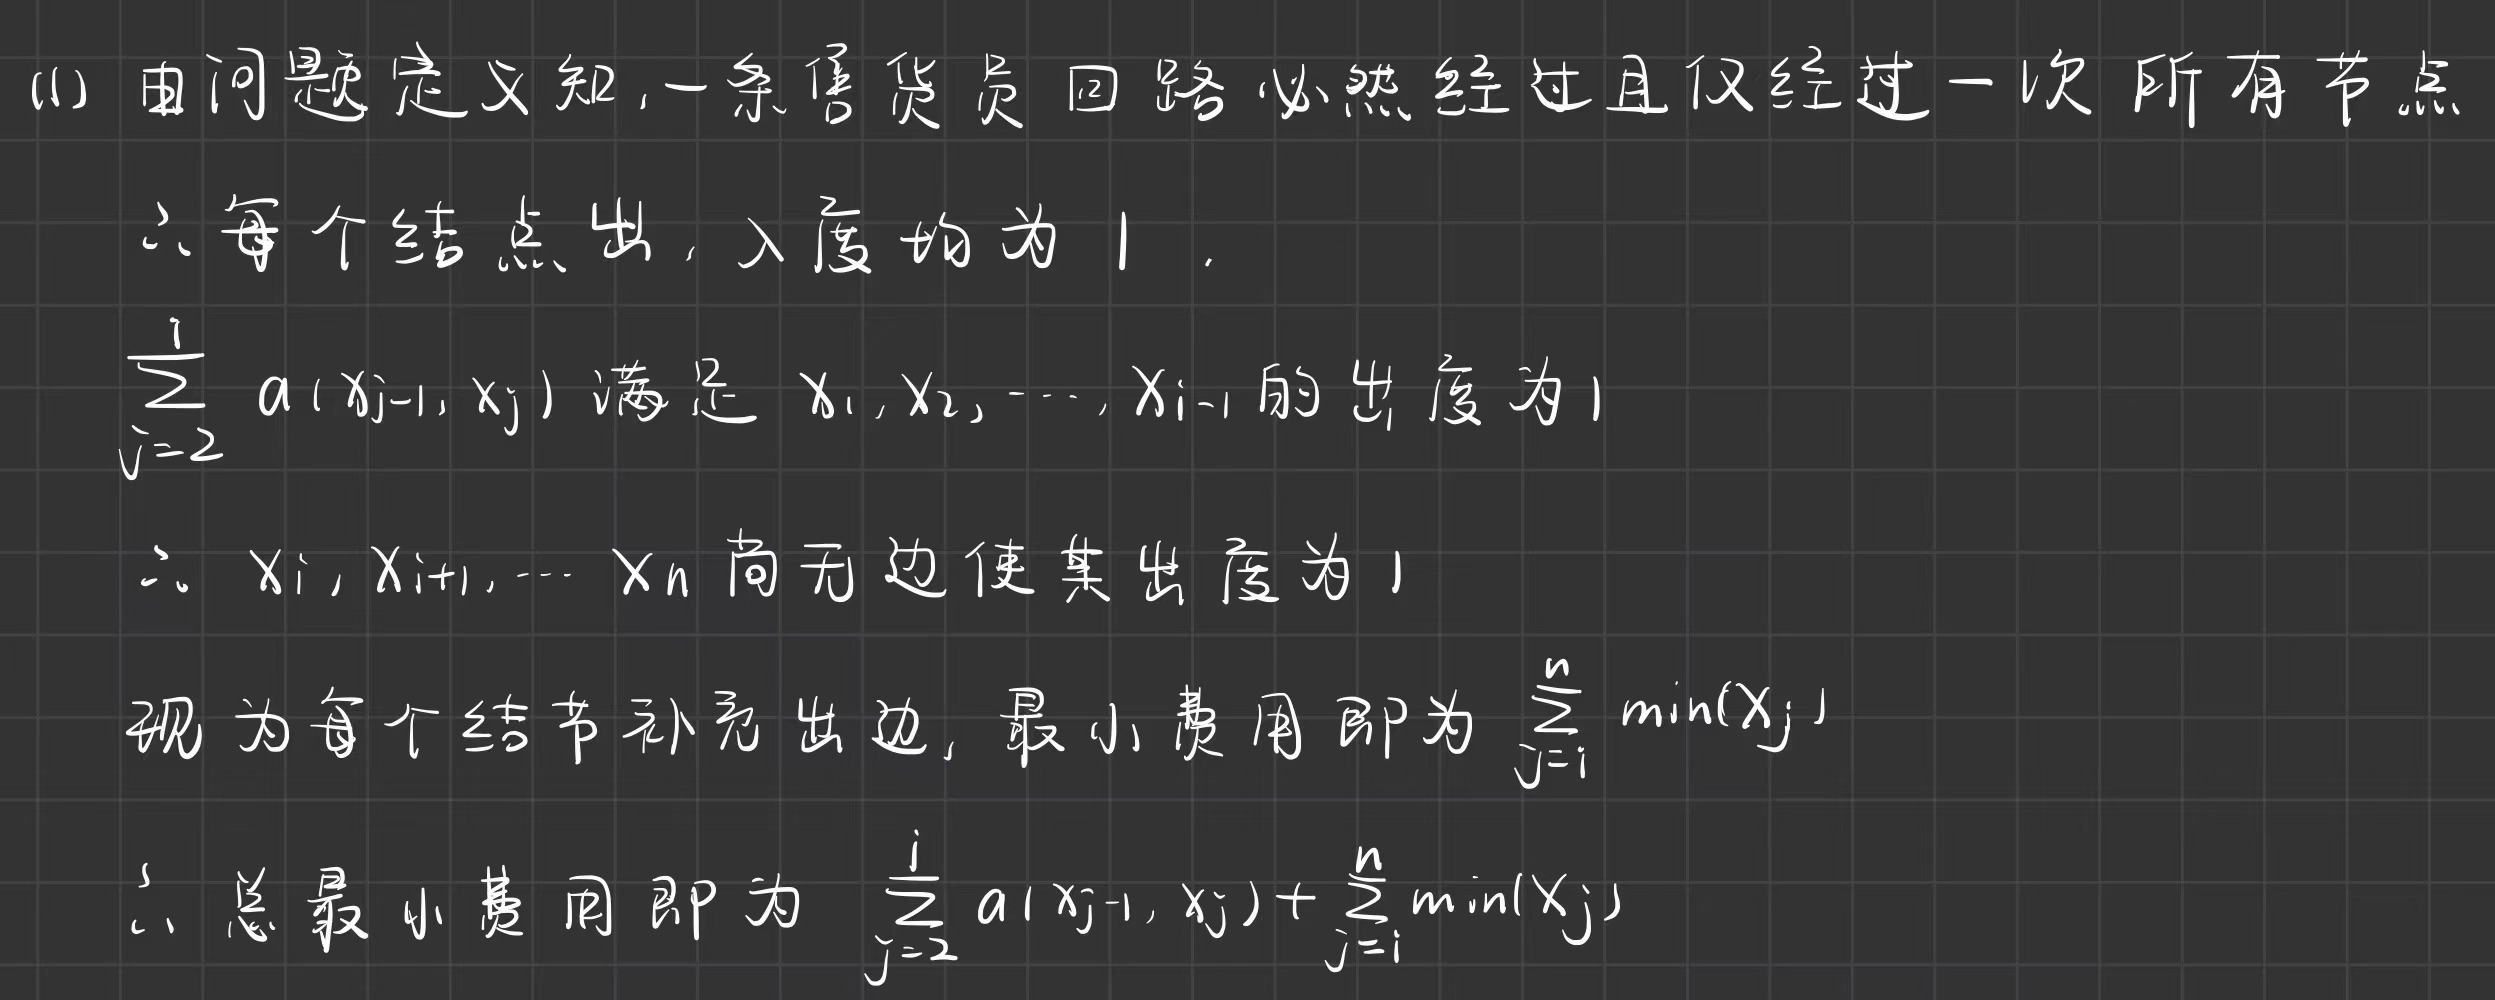 (1) 由问题定义知,一条售货员回路必然经过且仅经过一次所有节点
∴每个结点出、入度均为1.
∑_{j=2}^{i} a(xj-1, xj) 满足 x1, x2, ..., xi-1 的出度为1
∴ xi, xi+1, ... xn 需有边使其出度为1
现为每个结节补充出边,最小费用即为 ∑_{j=i}^{n} min(xj)
∴总最小费用即为 ∑_{j=2}^{i} a(xj-1, xj) + ∑_{j=i}^{n} min(xj)